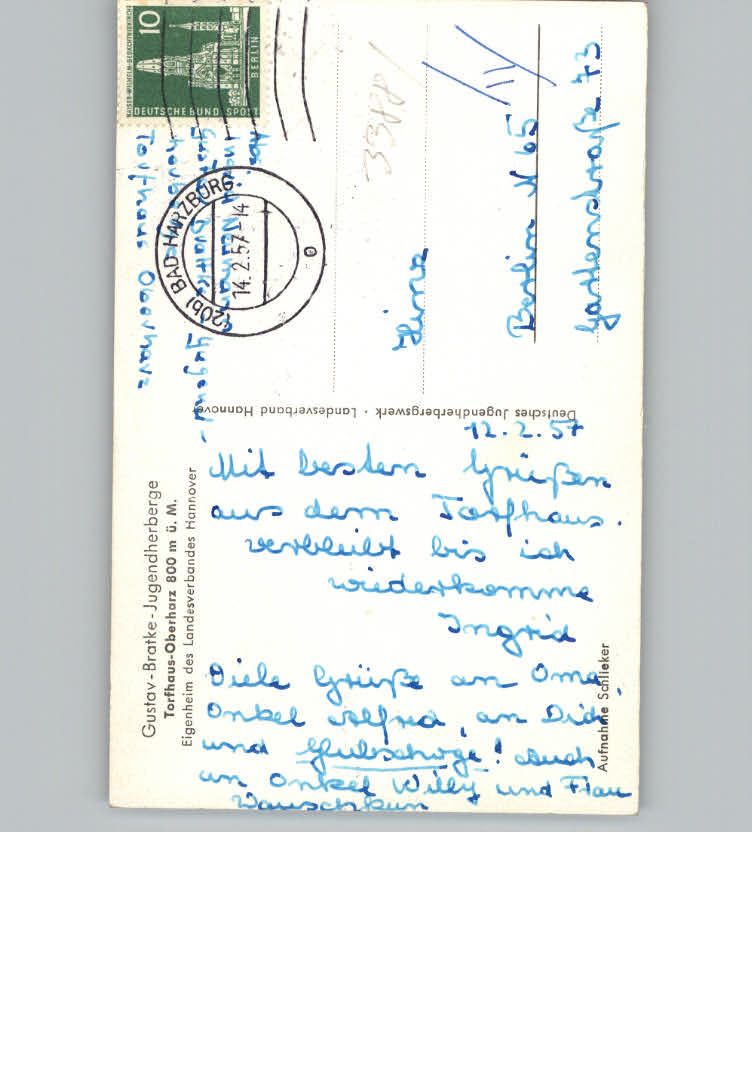 Gustav-Bratke-Jugendherberge
Torfhaus-Oberharz 800 m ü. M.
Eigenheim des Landesverbandes Hannover
12.2.57
Mit besten Grüßen
aus dem Torfhaus.
verbleibt bis ich
wiederkomme
Ingrid
Viele Grüße an Oma
Onkel Alfred, an Didi
und Glubschoge! Auch
an Onkel Willy und Frau
Aufnahme Schlieker
Deutsches Jugendherbergswerk · Landesverband Hannover
KAISER-WILHELM-GEDÄCHTNISKIRCHE
10
BERLIN
DEUTSCHE BUNDESPOST
(20b) BAD HARZBURG
14.2.57-14
o
Abs.:
Ingrid
Gustav Bratke Jugend-
herberge
Torfhaus Oberharz
Berlin N 65
Gartenstraße 73